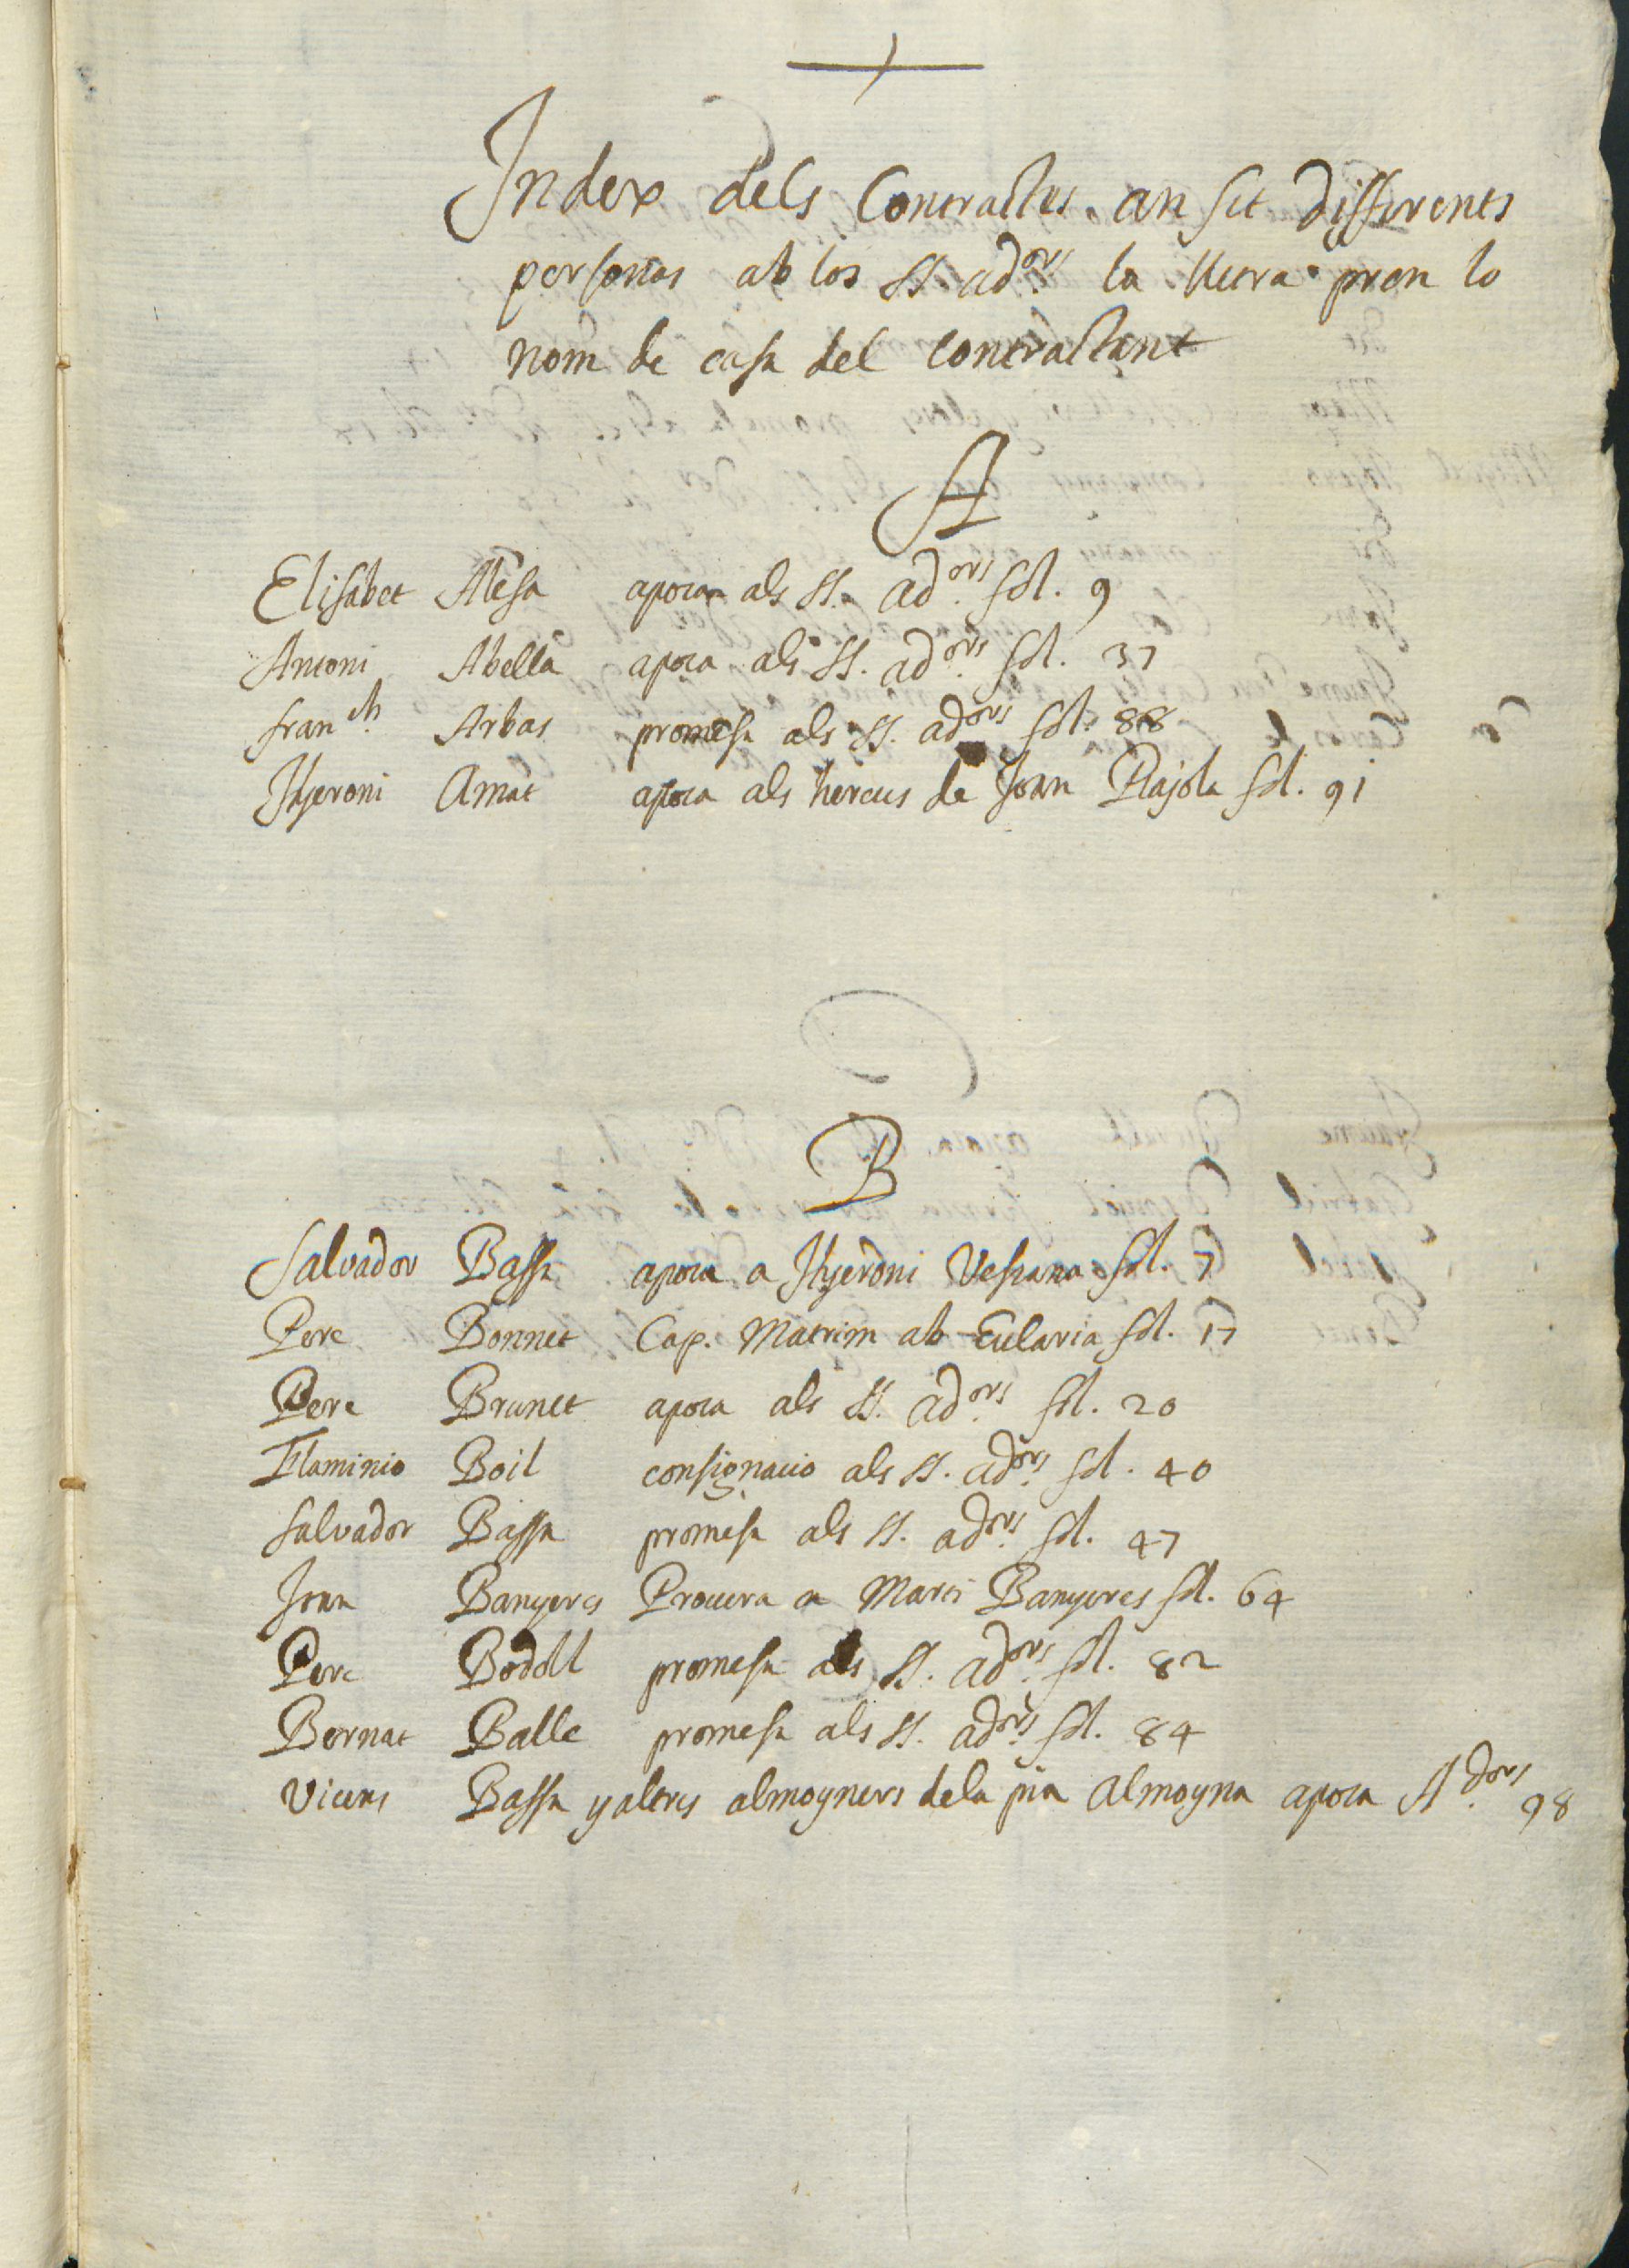 Index dels Contractes an fet differents
personas ab los SS. ad.ors la lletra pren lo
nom de casa del contractant
A
Elisabet Alesa apoca als SS. ad.ors fol. 9
Antoni Abella apoca als SS. ad.ors fol. 37
fran.ch Arbas promesa als SS. ad.ors fol. 88
Hyeroni Amat apoca als hereus de Joan Plajola fol. 91
B
Salvador Bassa apoca a Hyeroni fol. 7
Pere Bonnet Cap. Matrim ab Eularia fol. 17
Pere Brunet apoca als SS. ad.ors fol. 20
Flaminio Boil consignacio als SS. ad.ors fol. 40
Salvador Bassa promesa als SS. ad.ors fol. 47
Joan Banyeres Procura a Marti Banyeres fol. 64
Pere Bodoll promesa als SS. ad.ors fol. 82
Bernat Balle promesa als SS. ad.ors fol. 84
Vicens Bassa y altres almoyners de la pia Almoyna apoca A.dors 98